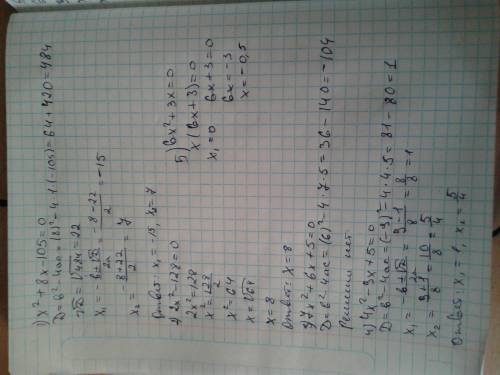 1) x² - 8x - 105 = 0
D = b² - 4ac = (8)² - 4·1·(-105) = 64 + 420 = 484
√D = √484 = 22
x₁ = -b±√D / 2a = -8-22 / 2 = -15
x₂ = 8+22 / 2 = 7
Ответ: x₁ = -15, x₂ = 7
2) 2x² - 128 = 0
2x² = 128
x² = 128/2
x² = 64
x = √64
x = 8
Ответ: x = 8
3) 7x² + 6x + 5 = 0
D = b² - 4ac = (6)² - 4·7·5 = 36 - 140 = -104
Решений нет
4) 4x² - 9x + 5 = 0
D = b² - 4ac = (-9)² - 4·4·5 = 81 - 80 = 1
x₁ = -b±√D / 2a = 9-1 / 8 = 8/8 = 1
x₂ = 9+1 / 8 = 10/8 = 5/4
Ответ: x₁ = 1, x₂ = 5/4
5) 6x² + 3x = 0
x(6x+3) = 0
x₁ = 0 6x+3 = 0
6x = -3
x = -0,5